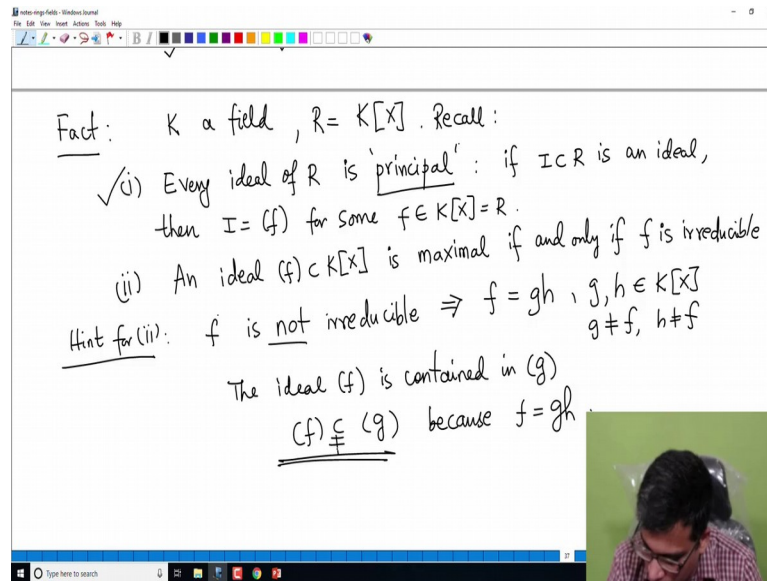 notes-rings-fields - Windows Journal
File Edit View Insert Actions Tools Help
Fact: K a field, R = K[X]. Recall:
✓(i) Every ideal of R is "principal": if I ⊂ R is an ideal,
then I = (f) for some f ∈ K[X] = R.
(ii) An ideal (f) ⊂ K[X] is maximal if and only if f is irreducible
Hint for (ii): f is not irreducible ⇒ f = gh, g, h ∈ K[X]
g ≠ f, h ≠ f
The ideal (f) is contained in (g)
(f) ⊊ (g) because f = gh.
37
Type here to search